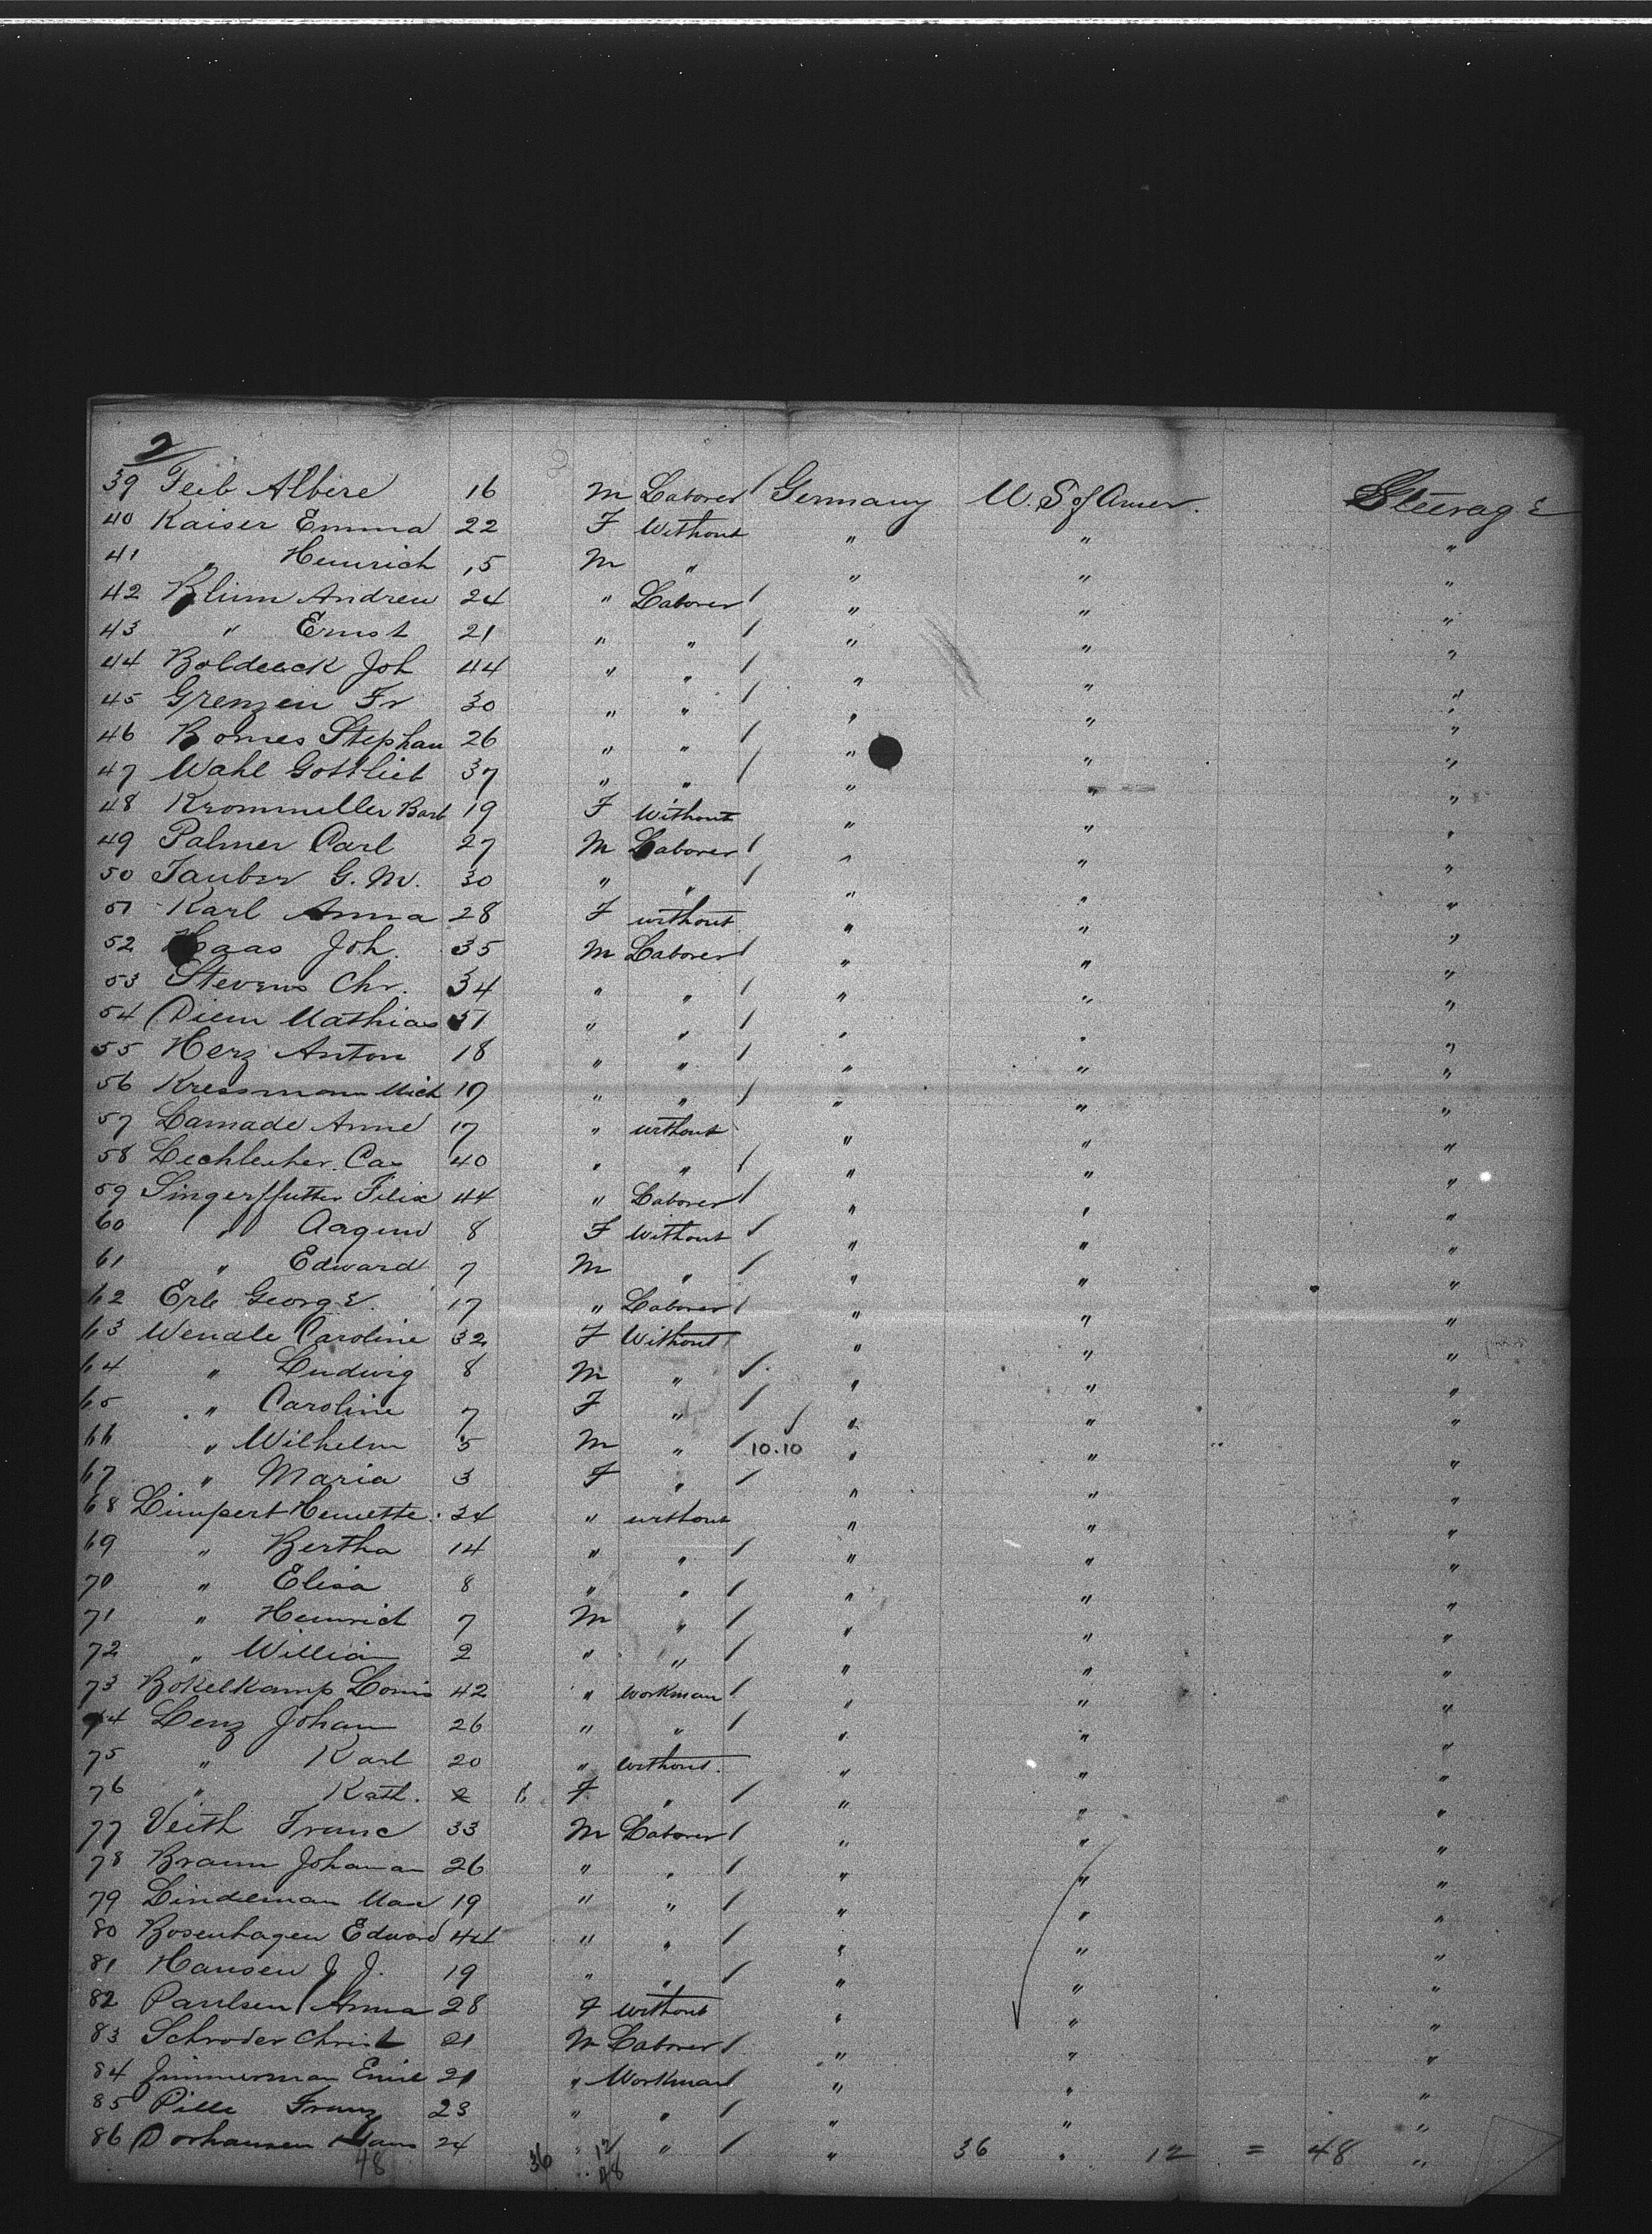 2
39 Feib Albere 16 M Laborer / Germany U. S of Amer. Steerage
40 Kaiser Emma 22 F Without " " "
41 " Heinrich 15 M " " " "
42 Blum Andreu 24 " Laborer / " " "
43 " Ernst 21 " " / " " "
44 Boldeack Joh 44 " " / " " "
45 Grenzen Fr 30 " " / " " "
46 Bomes Stephan 26 " " / " " "
47 Wahl Gottlieb 37 " " / " " "
48 Krommeller Barb 19 F Without " " "
49 Palmer Carl 27 M Laborer / " " "
50 Tauber G. M. 30 " " / " " "
51 Karl Anna 28 F without " " "
52 Haas Joh. 35 M Laborer / " " "
53 Stevens Chr. 34 " " / " " "
54 Diem Mathias 51 " " / " " "
55 Herz Anton 18 " " / " " "
56 Kressmann Mich 19 " " / " " "
57 Lamade Anne 17 " without " " "
58 Lechleiher Cas 40 " " / " " "
59 Singerffutter Felix 44 " Laborer / " " "
60 " 8 F Without / " " "
61 " Edward 7 M " / " " "
62 Erle George 17 " Laborer / " " "
63 Wendle Caroline 32 F Without " " "
64 " Ludwig 8 M " / " " "
65 " Caroline 7 F " / " " "
66 " Wilhelm 5 M " / 10.10 " " "
67 " Maria 3 F " / " " "
68 Limpert Henrette 34 " without " " "
69 " Bertha 14 " " / " " "
70 " Elisa 8 " " / " " "
71 " Heinrich 7 M " / " " "
72 " William 2 " " / " " "
73 Bokelkamp Louis 42 " Workman / " " "
74 Lenz Johan 26 " " / " " "
75 " Karl 20 " Without " " "
76 " Kath. 2 6 F " / " " "
77 Veith Franc 33 M Laborer / " " "
78 Braun Johanan 26 " " / " " "
79 Lindeman Max 19 " " / " " "
80 Bosenhagen Edward 44 " " / " " "
81 Hansen J J. 19 " " / " " "
82 Paulsen Anna 28 F Without " " "
83 Schroder Christ 21 M Laborer / " " "
84 Jimmerman Emil 21 " Workman / " " "
85 Pille Franz 23 " " / " " "
86 Dorhausen Hans 24 " " / " " "
48 36 12 48 36 12 = 48